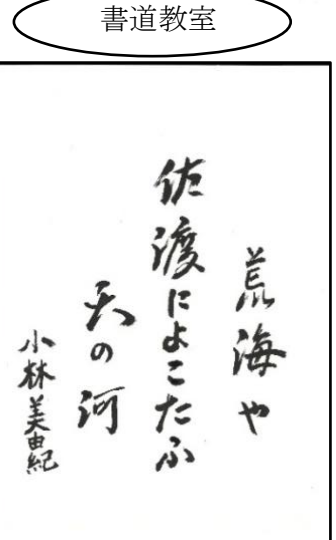 書道教室
荒海や
佐渡によこたふ
天の河
小林美由紀